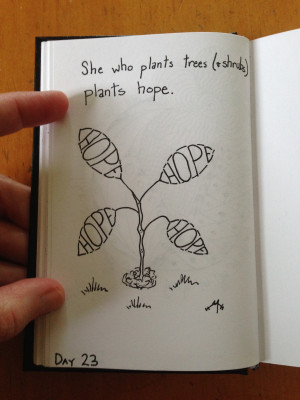 She who plants trees (+ shrubs)
plants hope.
HOPE
HOPE
HOPE
HOPE
DAY 23